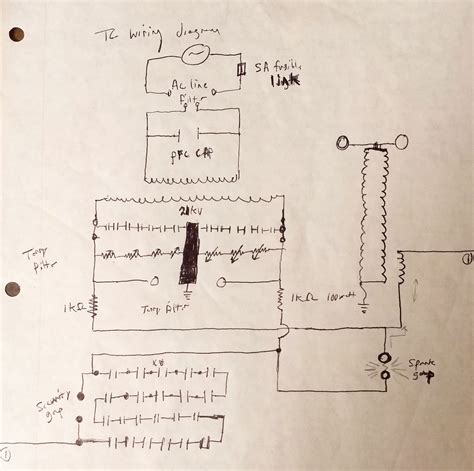 TC wiring diagram
5A fusible
link
AC line
filter
pfc cap
21kV
Terry
filter
1kΩ
Terry filter
1kΩ 100watt
Spark
gap
Security
gap
1
1